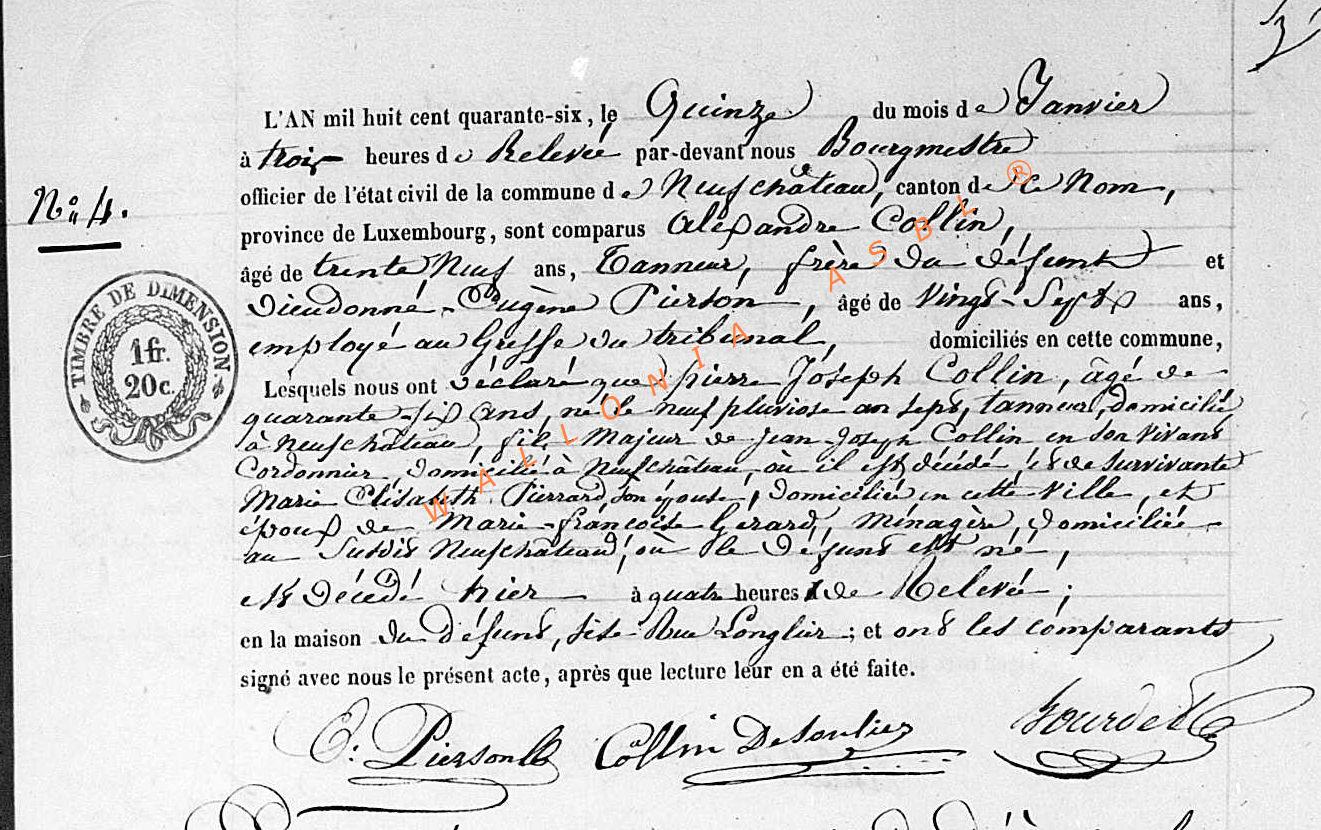 L'AN mil huit cent quarante-six, le Quinze du mois de Janvier
à trois heures de Relevée par-devant nous Bourgmestre
officier de l'état civil de la commune de Neufchâteau, canton de ce Nom,
N° 4.
province de Luxembourg, sont comparus Alexandre Collin,
âgé de trente Neuf ans, Tanneur, frère du défunt et
Dieudonné-Eugène Pierson, âgé de Vingt-Sept ans,
employé au Greffe du tribunal, domiciliés en cette commune,
TIMBRE DE DIMENSION.
1 fr.
20 c.
Lesquels nous ont déclaré que pierre Joseph Collin, âgé de
quarante-six ans, né le neuf pluviose an sept, tanneur, domicilié
à Neufchâteau, fils Majeur de Jean Joseph Collin en son Vivant
Cordonnier, domicilié à Neufchâteau, où il est décédé, et de Survivante
Marie Elisabeth Pierrard, son épouse, domiciliée en cette Ville, et
époux de Marie-françoise Gerard, Ménagère, domiciliée
au Susdit Neufchâteau, où le défunt est né,
est décédé hier à quatre heures de Relevée;
en la maison du défunt, sise Rue Longlier; et ont les comparants
signé avec nous le présent acte, après que lecture leur en a été faite.
E. Pierson Collin Desoulier Bourdet
WALLONIA ASBL ®